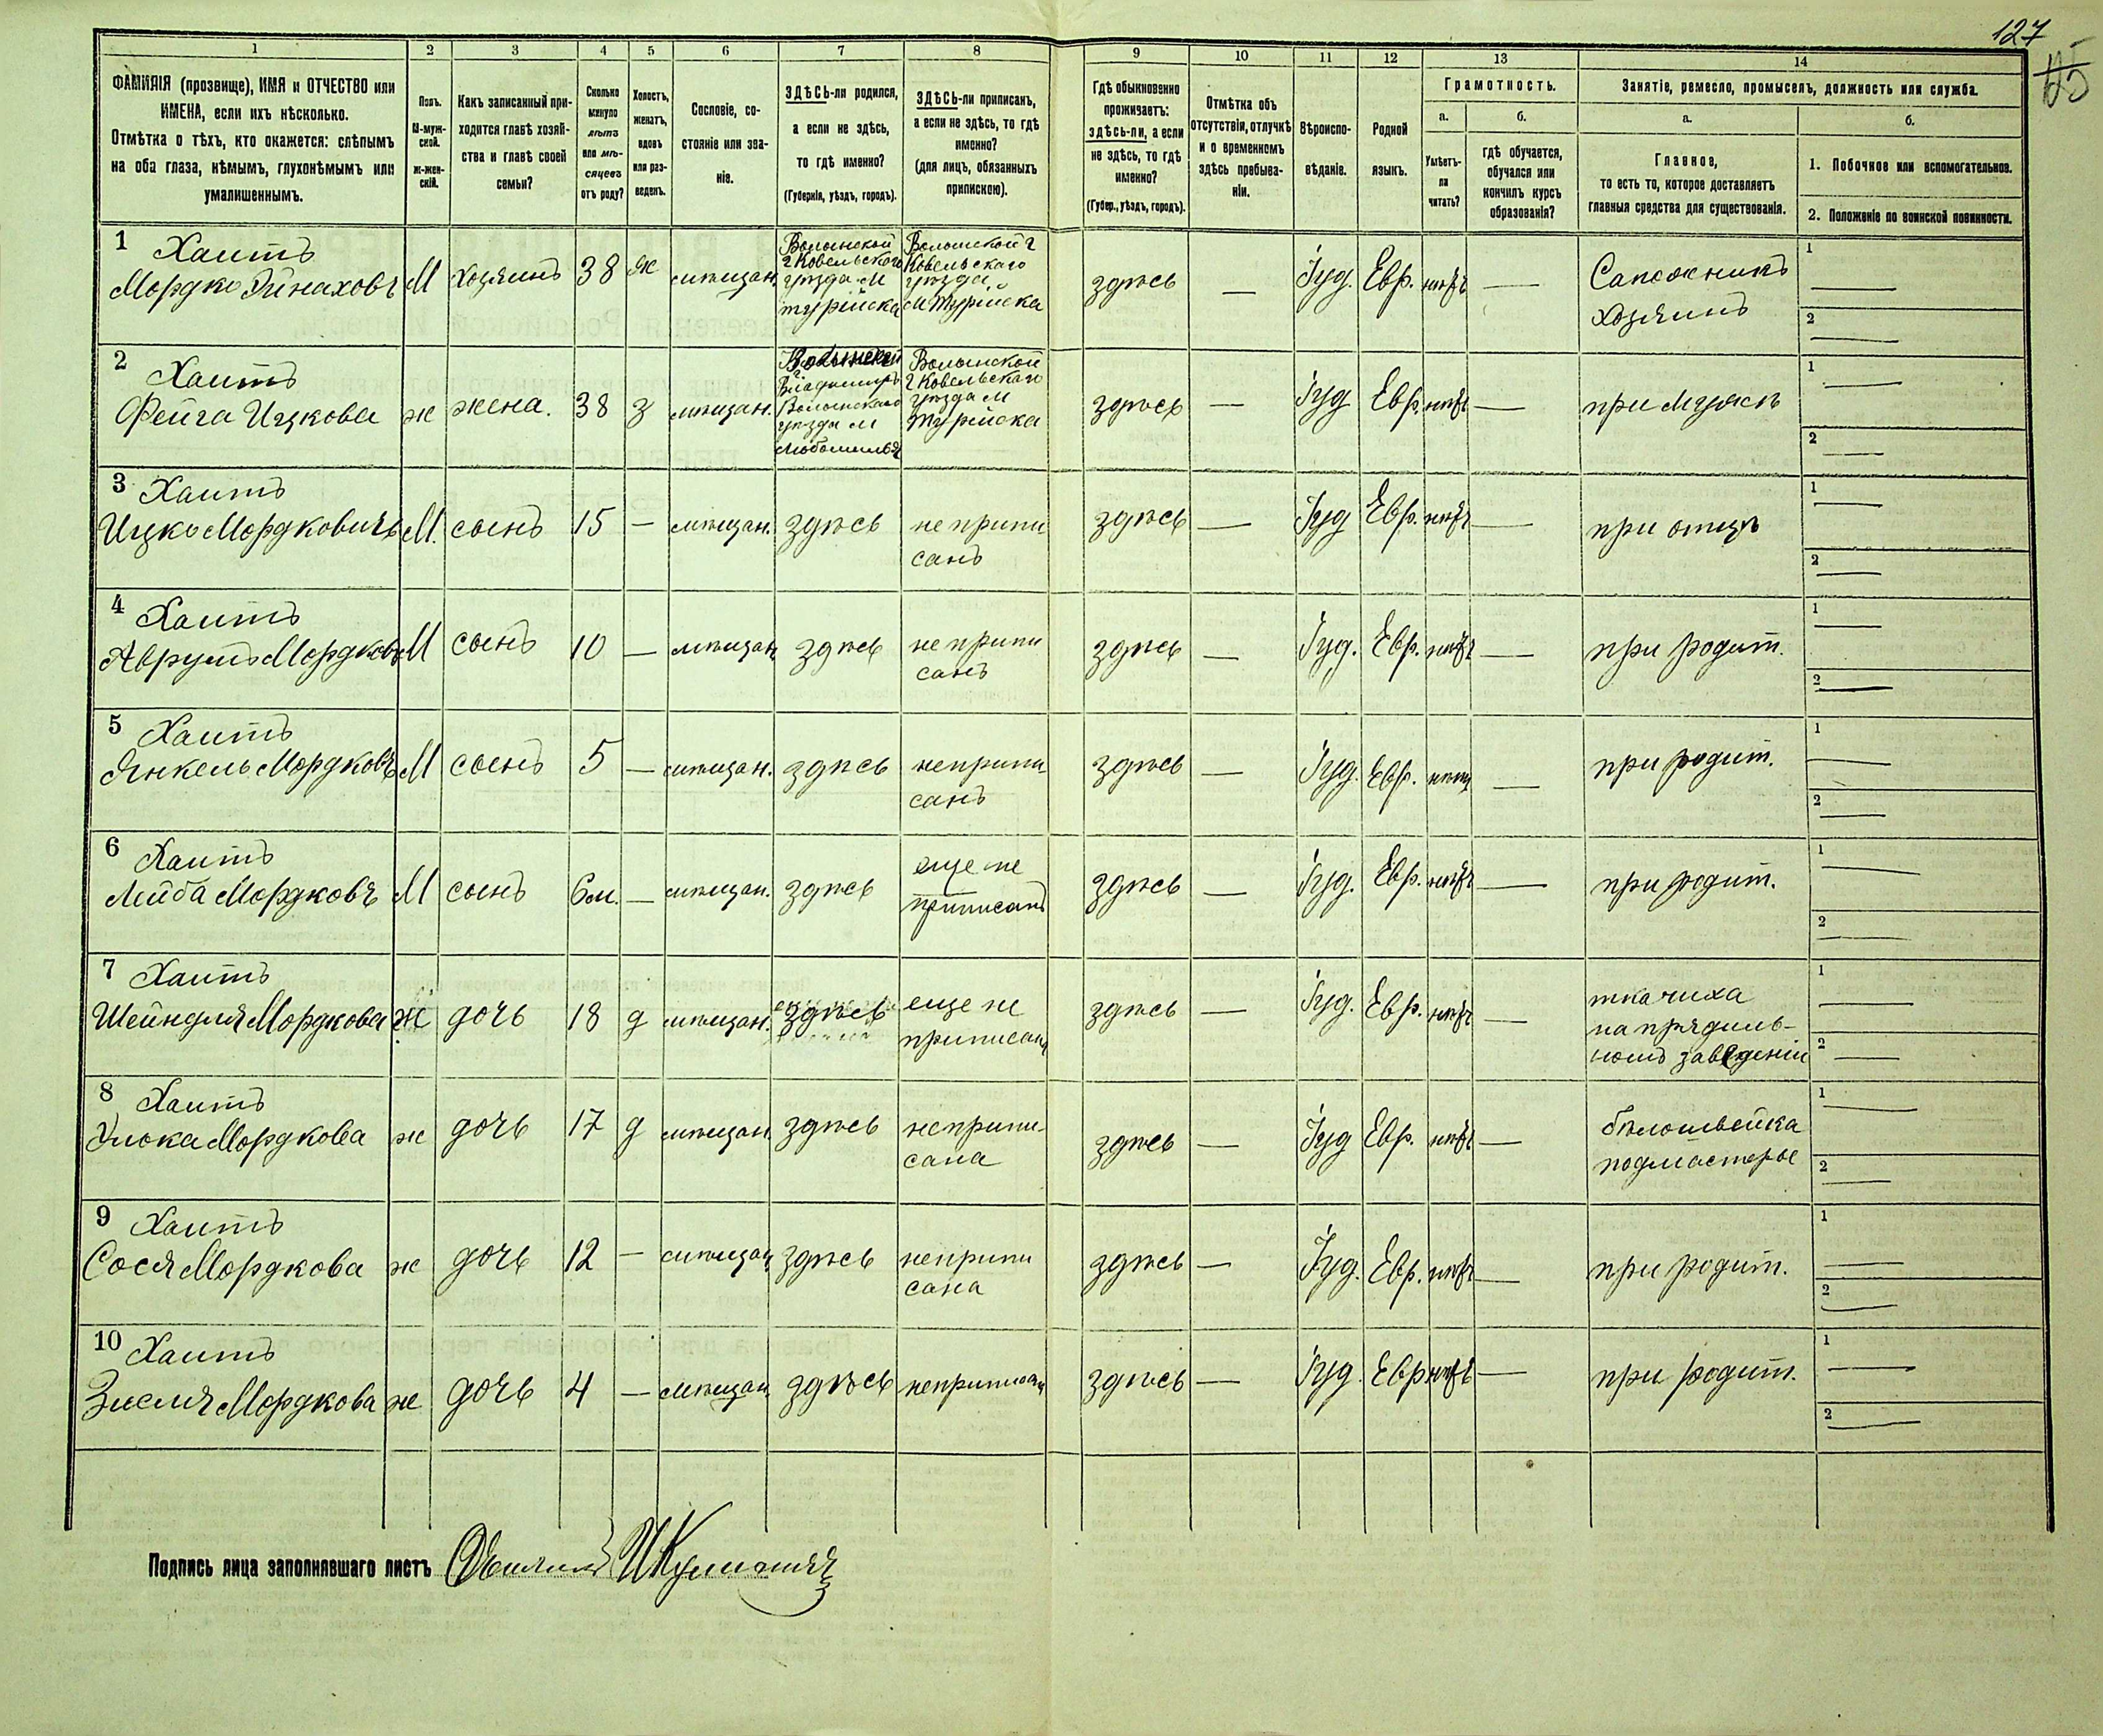 127
1 2 3 4 5 6 7 8 9 10 11 12 13 14
ФАМИЛІЯ (прозвище), ИМЯ и ОТЧЕСТВО или
ИМЕНА, если ихъ нѣсколько.
Отмѣтка о тѣхъ, кто окажется: слѣпымъ
на оба глаза, нѣмымъ, глухонѣмымъ или
умалишеннымъ.
Полъ.
М-муж-
ской.
Ж-жен-
скій.
Какъ записанный при-
ходится главѣ хозяй-
ства и главѣ своей
семьи?
Сколько
минуло
лѣтъ
или мѣ-
сяцевъ
отъ роду?
Холостъ,
женатъ,
вдовъ
или раз-
веденъ.
Сословіе, со-
стояніе или зва-
ніе.
ЗДѢСЬ-ли родился,
а если не здѣсь,
то гдѣ именно?
(Губернія, уѣздъ, городъ).
ЗДѢСЬ-ли приписанъ,
а если не здѣсь, то гдѣ
именно?
(для лицъ, обязанныхъ
припискою).
Гдѣ обыкновенно
проживаетъ:
здѣсь-ли, а если
не здѣсь, то гдѣ
именно?
(Губер., уѣздъ, городъ).
Отмѣтка объ
отсутствіи, отлучкѣ
и о временномъ
здѣсь пребыва-
ніи.
Вѣроиспо-
вѣданіе.
Родной
языкъ.
Грамотность.
а. б.
Умѣетъ-
ли
читать?
гдѣ обучается,
обучался или
кончилъ курсъ
образованія?
Занятіе, ремесло, промыселъ, должность или служба.
а. б.
Главное,
то есть то, которое доставляетъ
главныя средства для существованія.
1. Побочное или вспомогательное.
2. Положеніе по воинской повинности.
1 Хаитъ
Мордко М хозяинъ 38 ж мѣщан.
Волынской
г Ковельскаго
уѣзда М
Турійска
Волынской г
Ковельскаго
уѣзда
М Турійска
здѣсь — Іуд. Евр. нѣтъ —
Сапожникъ
хозяинъ
1 —
2 —
2 Хаитъ
Фейга Ицкова ж жена. 38 з мѣщан.
Волынской
г
Владимиръ
Волынскаго
уѣзда М
Волынской
г Ковельскаго
уѣзда М
Турійска
здѣсь — Іуд Евр. нѣтъ — при мужѣ
1 —
2 —
3 Хаитъ
Ицко Мордковичъ М. сынъ 15 — мѣщан. здѣсь не припи
санъ
здѣсь — Іуд Евр. нѣтъ — при отцѣ
1 —
2 —
4 Хаитъ
Аврумъ Мордковъ М сынъ 10 — мѣщан. здѣсь не припи
санъ
здѣсь — Іуд. Евр. нѣтъ — при родит.
1 —
2 —
5 Хаитъ
Янкель Мордковъ М сынъ 5 — мѣщан. здѣсь неприпи
санъ
здѣсь — Іуд. Евр. нѣтъ — при родит.
1 —
2 —
6 Хаитъ
Лейба Мордковъ М сынъ 6 м. — мѣщан. здѣсь еще не
приписанъ
здѣсь — Іуд. Евр. нѣтъ — при родит.
1 —
2 —
7 Хаитъ
Шейндля Мордкова ж дочь 18 д мѣщан. здѣсь еще не
приписана
здѣсь — Іуд. Евр. нѣтъ —
ткачиха
на прядиль-
номъ заведеніи
1 —
2 —
8 Хаитъ
Мордкова ж дочь 17 д мѣщан здѣсь неприпи-
сана
здѣсь — Іуд Евр. нѣтъ —
бѣлошвейка
подмастерье
1 —
2 —
9 Хаитъ
Сося Мордкова ж дочь 12 — мѣщан здѣсь неприпи
сана
здѣсь — Іуд. Евр. нѣтъ — при родит.
1 —
2 —
10 Хаитъ
Зисля Мордкова ж дочь 4 — мѣщан здѣсь неприписана
здѣсь — Іуд. Евр нѣтъ — при родит.
1 —
2 —
Подпись лица заполнявшаго листъ